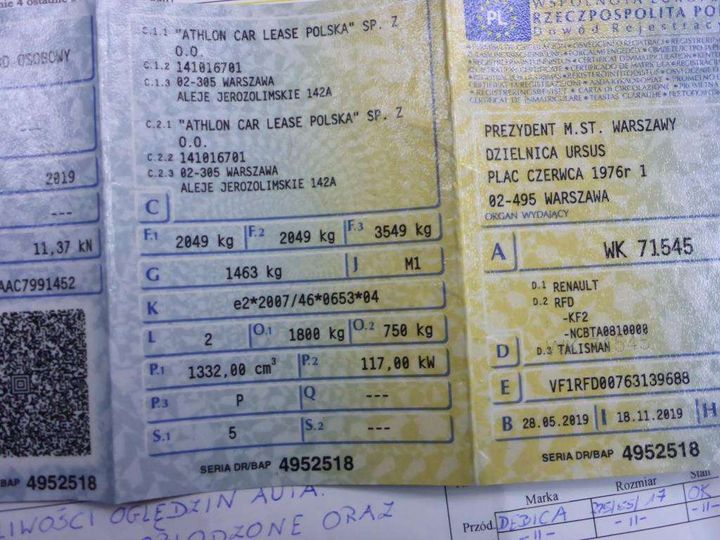 O OSOBOWY
2019
---
11,37 kN
AAC7991452
BAP 4952518
C.1.1 "ATHLON CAR LEASE POLSKA" SP. Z
O.O.
C.1.2 141016701
C.1.3 02-305 WARSZAWA
ALEJE JEROZOLIMSKIE 142A
C.2.1 "ATHLON CAR LEASE POLSKA" SP. Z
O.O.
C.2.2 141016701
C.2.3 02-305 WARSZAWA
ALEJE JEROZOLIMSKIE 142A
C
F.1 2049 kg F.2 2049 kg F.3 3549 kg
G 1463 kg J M1
K e2*2007/46*0653*04
L 2 O.1 1800 kg O.2 750 kg
P.1 1332,00 cm³ P.2 117,00 kW
P.3 P Q ---
S.1 5 S.2 ---
SERIA DR/BAP 4952518
PL
RZECZPOSPOLITA PO
Dowód Rejestrac
PREZYDENT M.ST. WARSZAWY
DZIELNICA URSUS
PLAC CZERWCA 1976r 1
02-495 WARSZAWA
ORGAN WYDAJĄCY
A WK 71545
D.1 RENAULT
D.2 RFD
-KF2
-NCBTA0810000
D D.3 TALISMAN
E VF1RFD00763139688
B 28.05.2019 I 18.11.2019 H
SERIA DR/BAP 4952518
LIWOŚCI OGLĘDZIN AUTA.
ORAZ
Marka Rozmiar Stan
Przód. DĘBICA 225/55/17 OK
-11- -11- -11-